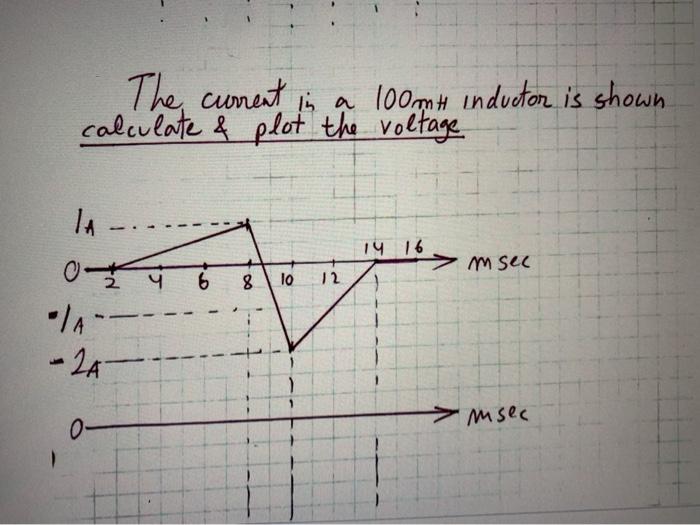 The current in a 100mH inductor is shown
calculate & plot the voltage
1A
14 16
0 2 4 6 8 10 12 msec
-1A
-2A
0 msec